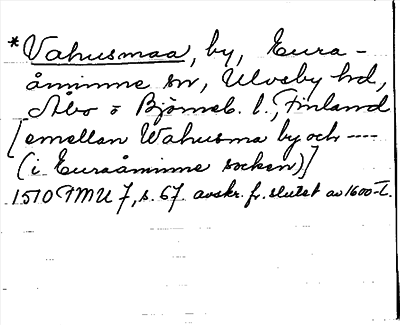 *Vahusmaa, by, Eura-
åminne sn, Ulvsby hd,
Åbo o Björneb. l., Finland
[emellan Wahusma by och ----
(i Euraåminne socken)]
1510 FMU 7, s. 67 avskr. fr. slutet av 1600-t.